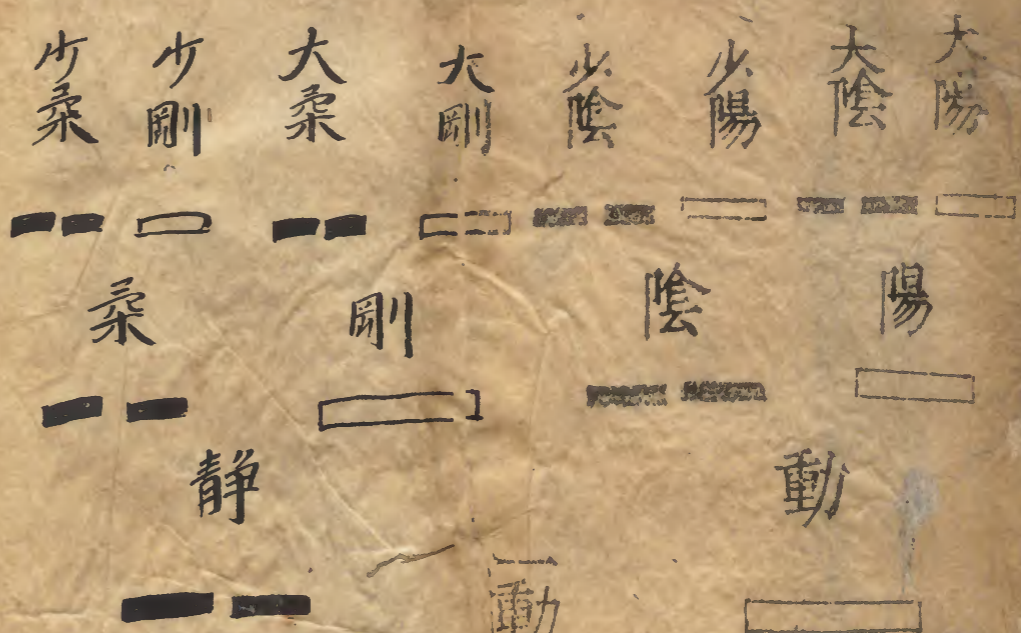 大陽
大陰
少陽
少陰
大剛
大柔
少剛
少柔
陽
陰
剛
柔
動
静
一動